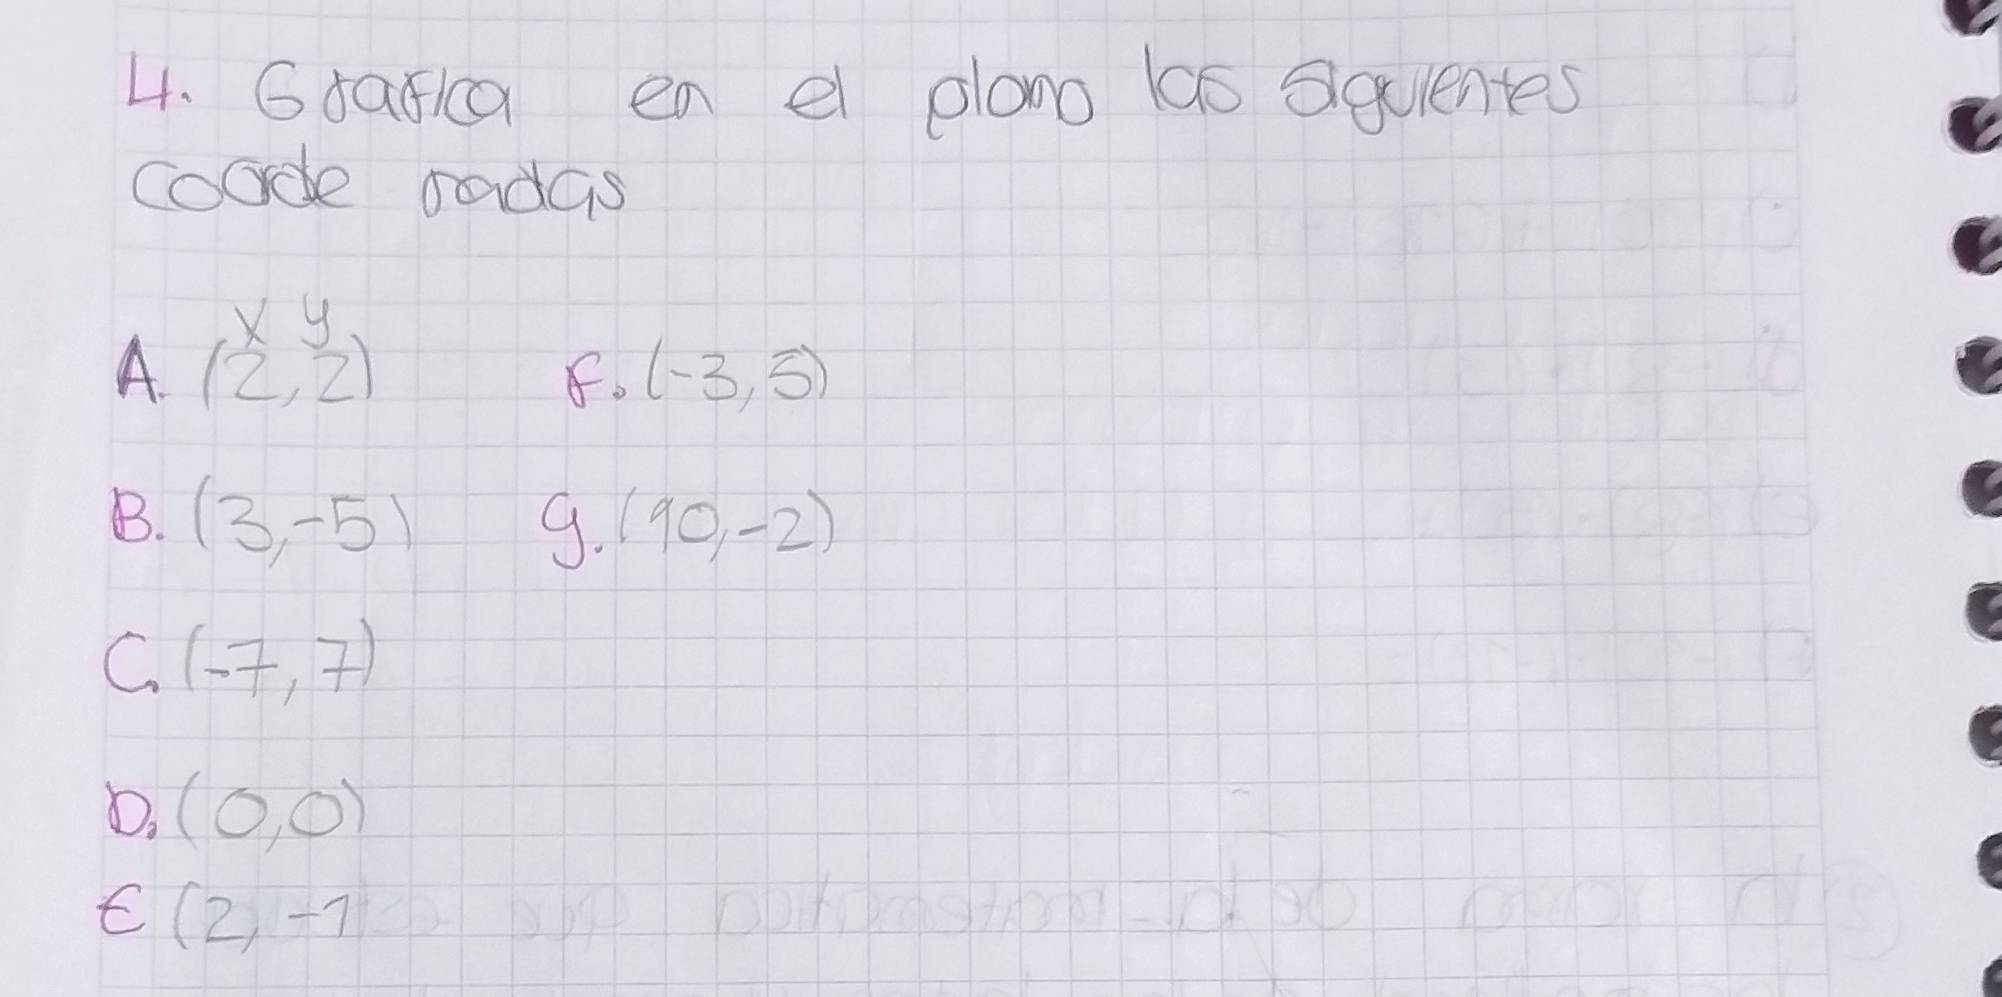 4. Grafica en el plano las siguientes
coorde nadas
x y
A. (2, 2) F. (-3, 5)
B. (3, -5) g. (10, -2)
C. (-7, 7)
D. (0, 0)
E (2, -1